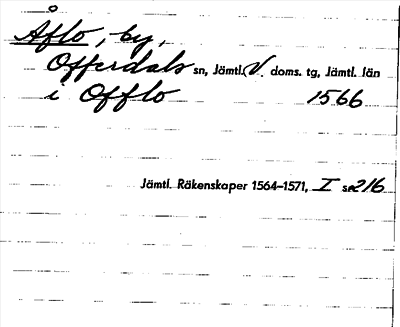 Åflo, by,
Offerdals sn, Jämtl. V. doms. tg, Jämtl. län
i Offlo 1566
Jämtl. Räkenskaper 1564–1571, I s. 216